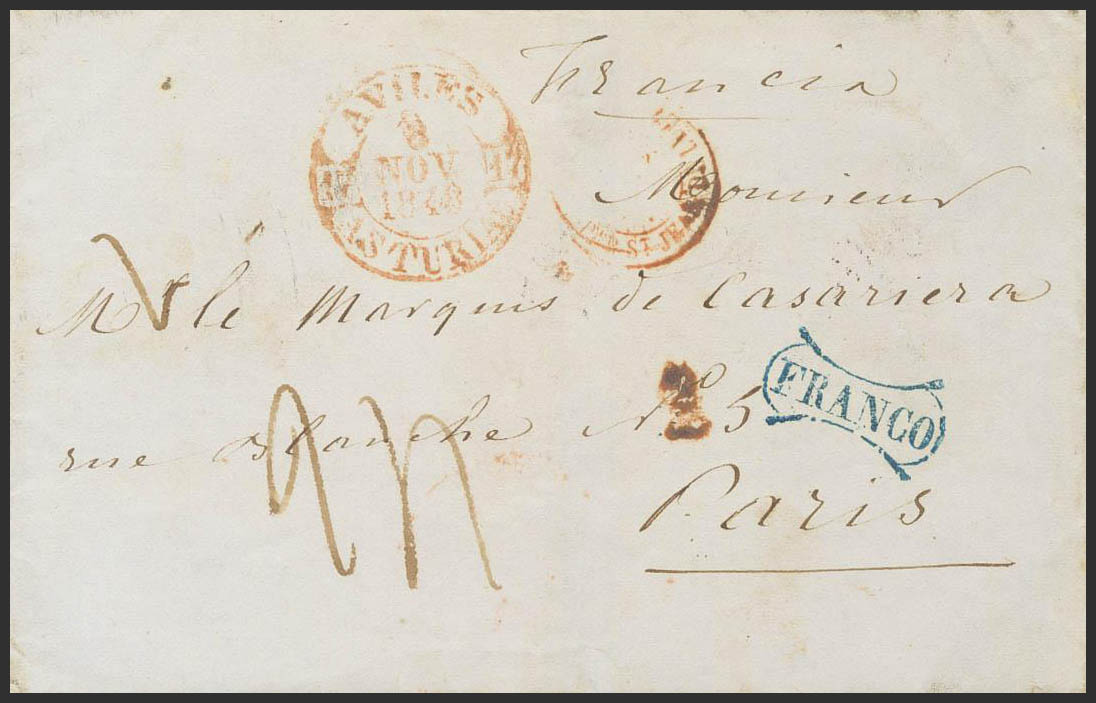 Francia
AVILES
8
NOV
1848
ASTURIAS
ST. JEAN
Monsieur
Mr le Marquis de Casariera
rue Blanche No. 5
FRANCO
Paris